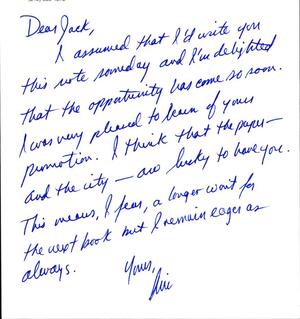 Dear Jack,
I assumed that I'd write you
this note someday and I'm delighted
that the opportunity has come so soon.
I was very pleased to learn of yours
promotion. I think that the paper—
and the city — are lucky to have you.
This means, I fear, a longer wait for
the next book but I remain eager as
always.
Yours,